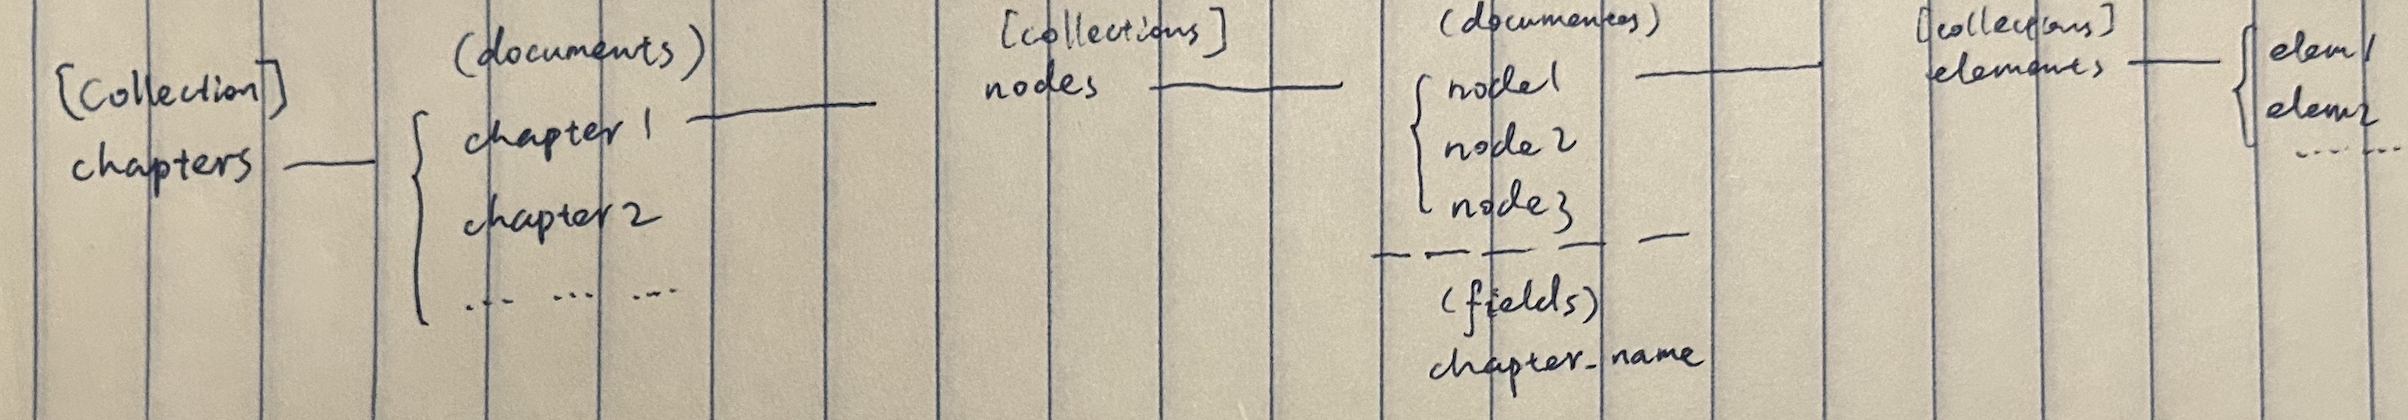 [Collection]
chapters
(documents)
chapter 1
chapter 2
... ... ...
[collections]
nodes
(documentes)
node1
node2
node3
(fields)
chapter_name
[collections]
elements
elem1
elem2
... ...